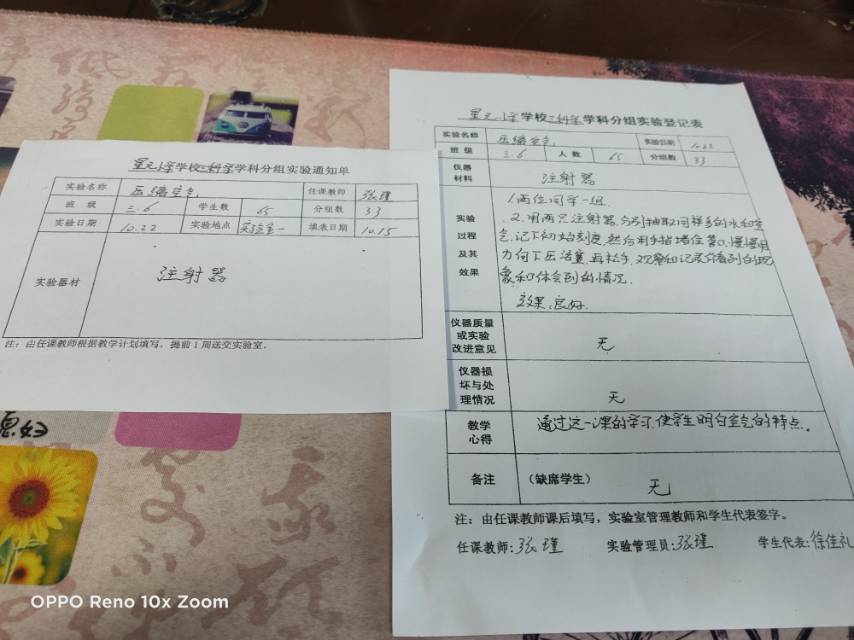 星元小学学校三科学学科分组实验通知单
实验名称 压缩空气 任课教师 张瑾
班 级 三.6 学生数 65 分组数 33
实验日期 10.22 实验地点 实验室一 填表日期 10.15
实验器材 注射器
注：由任课教师根据教学计划填写，提前1周送交实验室。
星元小学学校三科学学科分组实验登记表
实验名称 压缩空气 实验日期 10.22
班 级 三.6 人 数 65 分组数 33
仪器材料 注射器
实验过程及其效果
1.两位同学一组.
2.用两只注射器,分别抽取同样多的水和空
气,记下初始刻度,然后用手指堵住管口,慢慢用
力向下压活塞,再松手,观察和记录你看到的现
象和体会到的情况.
效果:良好.
仪器质量或实验改进意见 无
仪器损坏与处理情况 无
教学心得 通过这一课的学习,使学生明白空气的特点。
备注 （缺席学生） 无
注：由任课教师课后填写，实验室管理教师和学生代表签字。
任课教师:张瑾 实验管理员:张瑾 学生代表:徐佳礼
OPPO Reno 10x Zoom